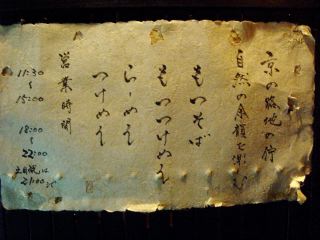 京の路地の佇
自然の余韻を楽む
もいそば
もいつけめん
らーめん
つけめん
営業時間
11:30
〜
15:00
18:00
〜
22:00
土日祝は
21:00まで